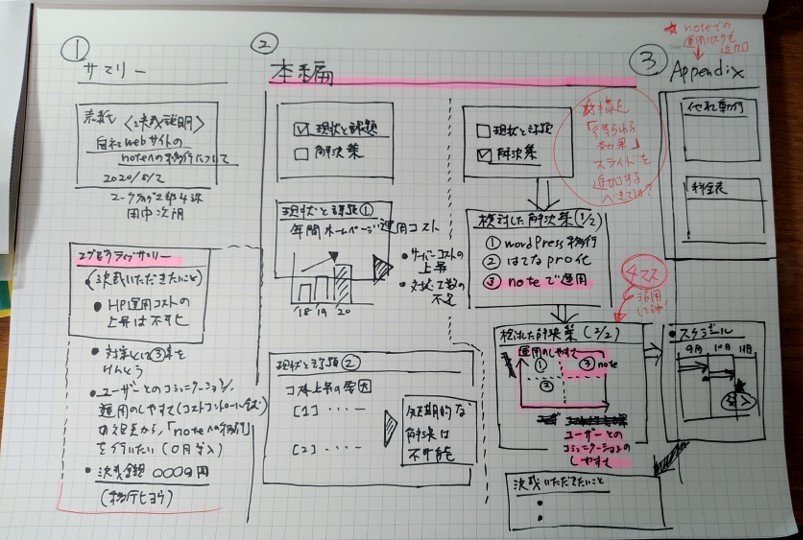 ①
サマリー
表紙 〈決裁説明〉
自社webサイトの
noteへの移行について
2020/5/2
マーケティング2部4課
田中次朗
エグゼクティブサマリー
(決裁いただきたいこと)
• HP運用コストの
上昇は不可ヒ
• 対策として③案を
けんとう
• ユーザーとのコミュニケーション/
運用のしやすさ(コストコントロール含む)
の視点から、「noteへの移行」
を行いたい(〇月導入)
• 決裁金額 〇〇〇9円
(移行ヒヨウ)
②
本編
☑ 現状と課題
□ 解決策
現状と課題①
年間ホームページ運用コスト
18 19 20
• サーバーコストの
上昇
• 対応工数の
不足
現状と課題②
コスト上昇の要因
[1] ・・・ー
[2] ・・・ー
短期的な
解決は
不可能
□ 現状と課題
☑ 解決策
検討した解決策(1/2)
① wordPress移行
② はてなpro化
③ noteで運用
検討した解決策(2/2)
運用のしやすさ
①
②
③ note
ユーザーとの
コミュニケーションの
しやすさ
決裁いただきたいこと
•
•
☆構定
「得られる
効果」
スライドを
追加する
べきでは?
4マス
活用
してみた
③
Appendix
★ noteでの
運用リスクも
追加
他社動向
料金表
• スケジュール
9月 10月 11月
導入